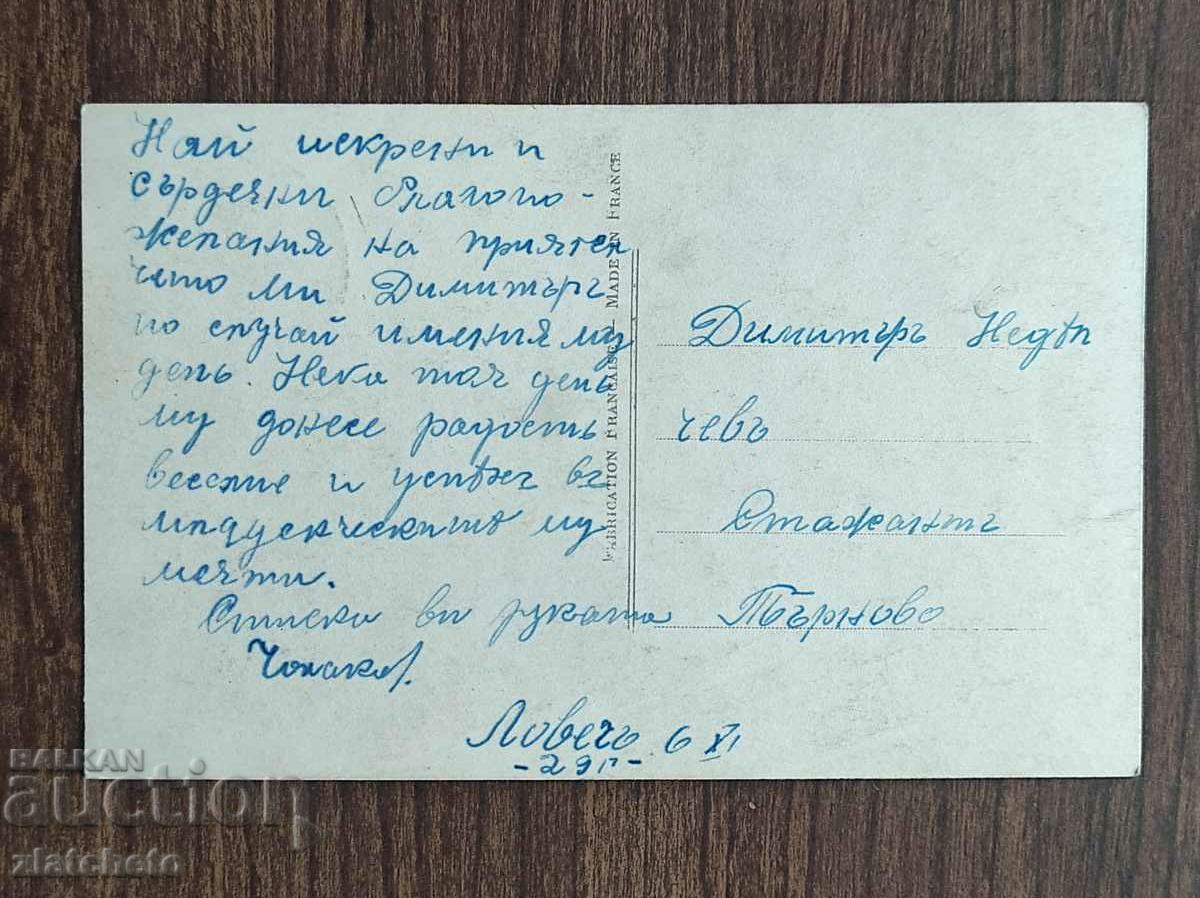 Най искрени и
сърдечни благопо-
желания на приятел
чето ми Димитъръ
по случай имения му
день. Нека тоя день
му донесе радость
веселие и успѣхъ въ
младенческитѣ му
мечти.
Стиска ви ръката
Чолаковъ.
Ловечъ 6 XI
-29г-
FABRICATION FRANÇAISE - MADE IN FRANCE
Димитъръ Недѣл
чевъ
Стажантъ
Търново
BALKAN
auction
zlatcheto